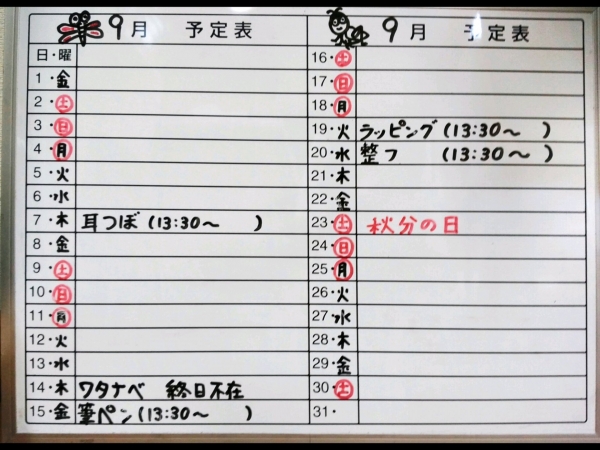 9月 予定表
日・曜
1・金
2・土
3・日
4・月
5・火
6・水
7・木 耳つぼ(13:30〜 )
8・金
9・土
10・日
11・月
12・火
13・水
14・木 ワタナベ 終日不在
15・金 筆ペン(13:30〜 )
9月 予定表
16・土
17・日
18・月
19・火 ラッピング(13:30〜 )
20・水 整フ (13:30〜 )
21・木
22・金
23・土 秋分の日
24・日
25・月
26・火
27・水
28・木
29・金
30・土
31・